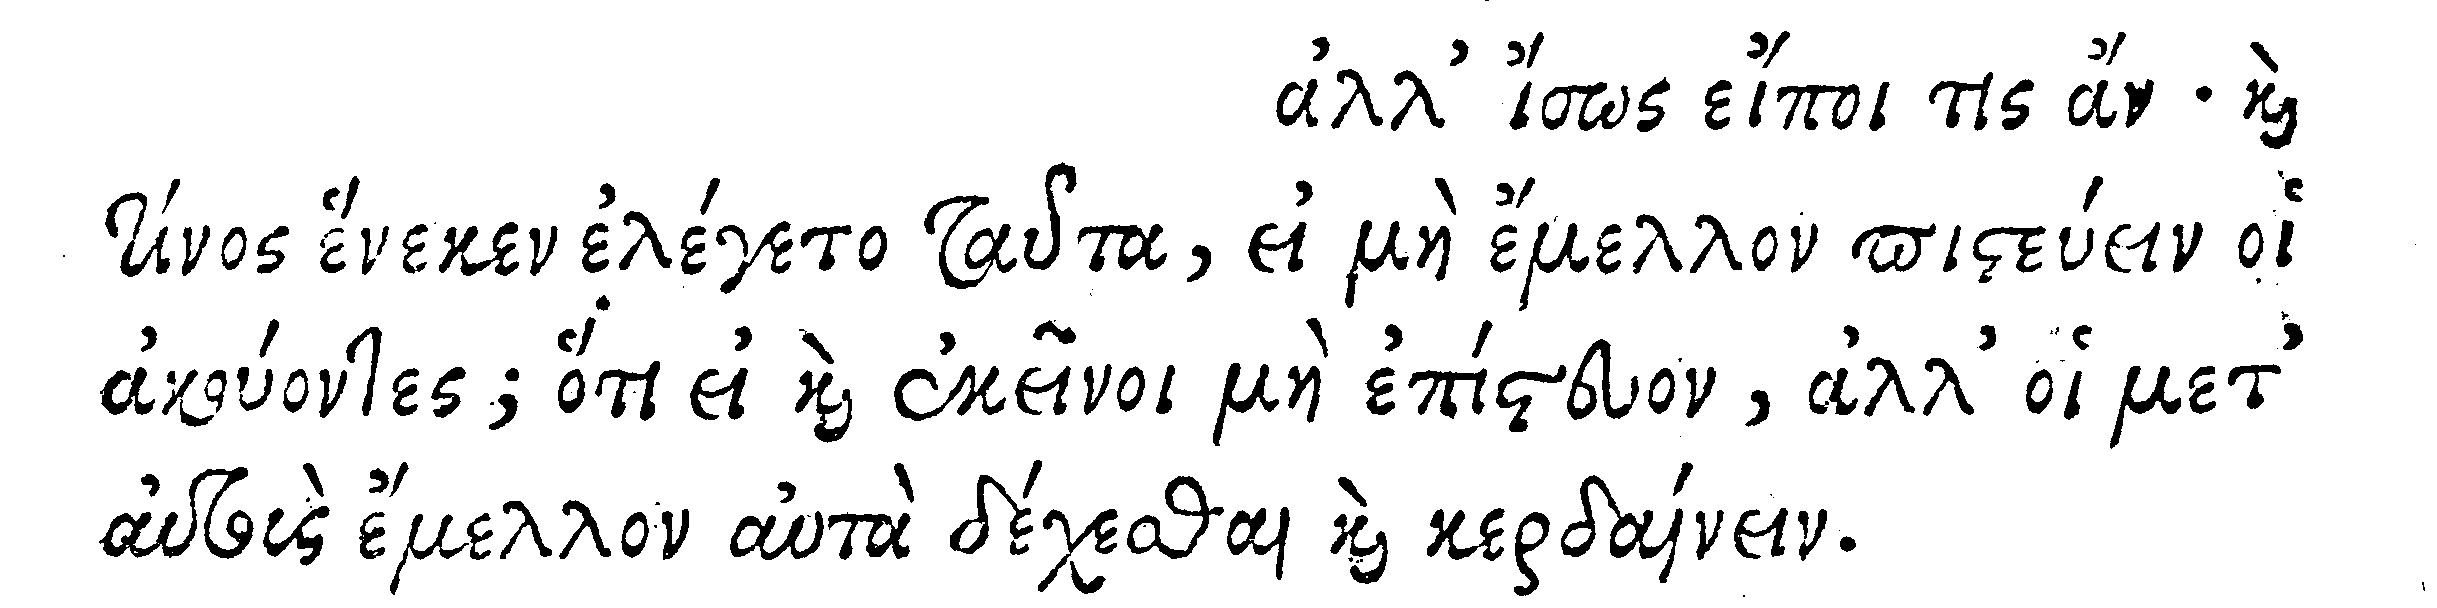 ἀλλ' ἴσως εἴποι τις ἄν · καὶ
τίνος ἕνεκεν ἐλέγετο ταῦτα, εἰ μὴ ἔμελλον πιστεύειν οἱ
ἀκούοντες; ὅτι εἰ καὶ ἐκεῖνοι μὴ ἐπίστευον, ἀλλ' οἱ μετ'
αὐτοὺς ἔμελλον αὐτὰ δέχεσθαι καὶ κερδαίνειν.